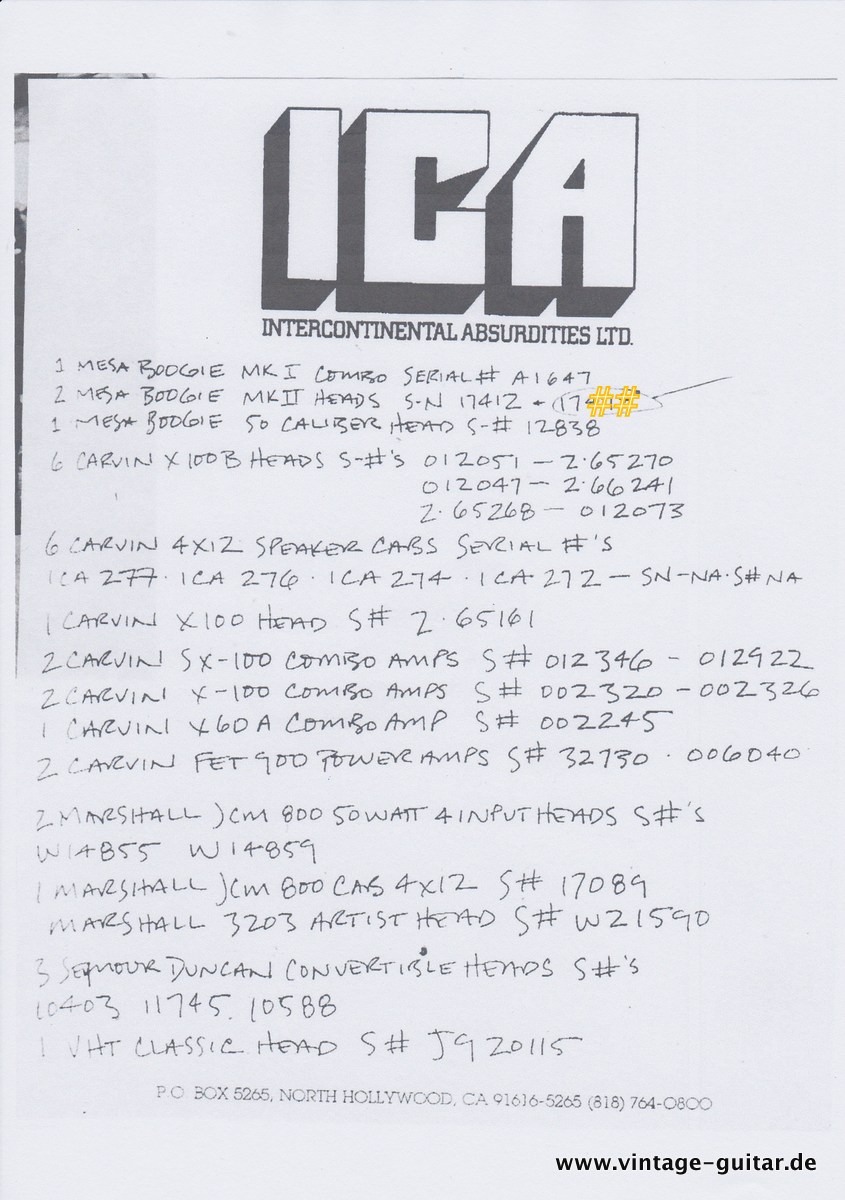 ICA
INTERCONTINENTAL ABSURDITIES LTD.
1 MESA BOOGIE MK I COMBO SERIAL # A1647
2 MESA BOOGIE MKII HEADS S-N 17412 + 174##
1 MESA BOOGIE 50 CALIBER HEAD S-# 12838
6 CARVIN X100B HEADS S-#'S 012051 - 2.65270
012047 - 2.66241
2.65268 - 012073
6 CARVIN 4X12 SPEAKER CABS SERIAL #'S
ICA 277 · ICA 276 · ICA 274 · ICA 272 - SN-NA·S#NA
1 CARVIN X100 HEAD S# 2.65161
2 CARVIN SX-100 COMBO AMPS S# 012346 - 012922
2 CARVIN X-100 COMBO AMPS S# 002320 - 002326
1 CARVIN X60A COMBO AMP S# 002245
2 CARVIN FET 900 POWER AMPS S# 32730 · 006040
2 MARSHALL JCM 800 50 WATT 4 INPUT HEADS S#'S
W14855 W14859
1 MARSHALL JCM 800 CAB 4X12 S# 17089
MARSHALL 3203 ARTIST HEAD S# W21590
3 SEYMOUR DUNCAN CONVERTIBLE HEADS S#'S
10403 11745. 10588
1 VHT CLASSIC HEAD S# J920115
P.O. BOX 5265, NORTH HOLLYWOOD, CA 91616-5265 (818) 764-0800
www.vintage-guitar.de